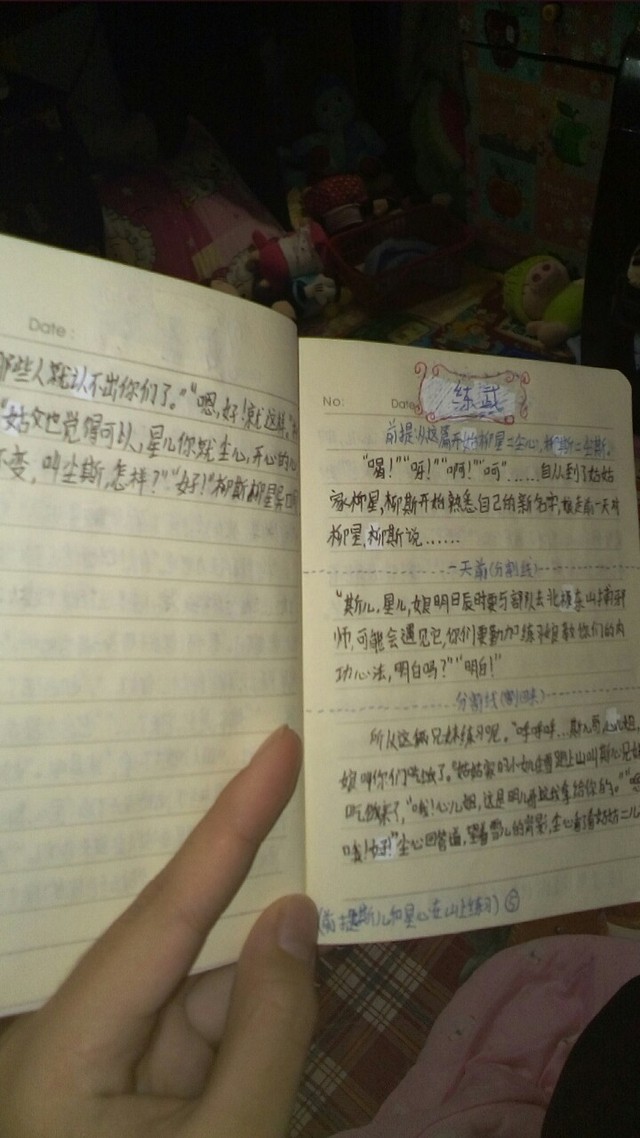 Date:
那些人就认不出你们了。”“嗯,好!就这样。”
“姑文也觉得可以,星儿你就尘心,开心的心
不变,叫尘斯,怎样?”“好!”柳斯柳星异口同
练武
No:
Date
前提:从这篇开始柳星=尘心,柳斯=尘斯。
“喝!”“呀!”“啊!”“呵”……自从到了姑姑
家柳星,柳斯开始熟悉自己的新名字,娘走前一天对
柳星,柳斯说……
一天前(分割线)
“斯儿,星儿,娘明日辰时要与部队去北极东山捕
师,可能会遇见它,你们要勤加练习娘教你们的内
功心法,明白吗?”“明白!”
分割线(割回来)
所以这俩兄妹练习呢。“呼呼呼…斯儿哥心儿姐,
娘叫你们吃饭了。”姑姑家的小女儿雪跑上山叫斯儿兄妹
吃饭来了,“哦!心儿姐,这是明儿哥让我拿给你的。”“嗯
哦!好!”尘心回答道,望着雪儿的背影,尘心看了看
(前提斯儿和星心在山上练习)⑤